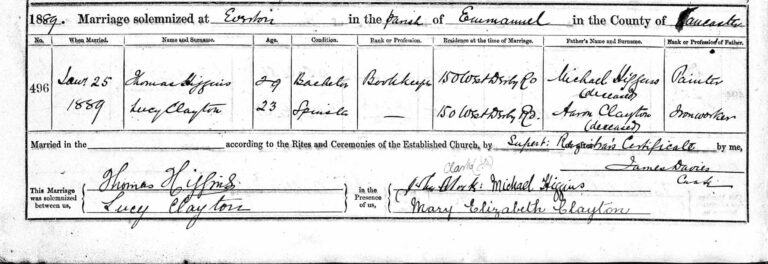 1889. Marriage solemnized at Everton in the Parish of Emmanuel in the County of Lancaster
No. When Married. Name and Surname. Age. Condition. Rank or Profession. Residence at the time of Marriage. Father's Name and Surname. Rank or Profession of Father.
496 Jany 25 Thomas Higgins 29 Bachelor Bookkeeper 150 West Derby Rd Michael Higgins (deceased) Painter
1889 Lucy Clayton 23 Spinster — 150 West Derby Rd. Aaron Clayton (deceased) Ironworker
Married in the according to the Rites and Ceremonies of the Established Church, by Supert: Registrar's Certificate by me,
James Davies
This Marriage was solemnized between us, Thomas Higgins in the Presence of us, Clark: Michael Higgins
Lucy Clayton Mary Elizabeth Clayton